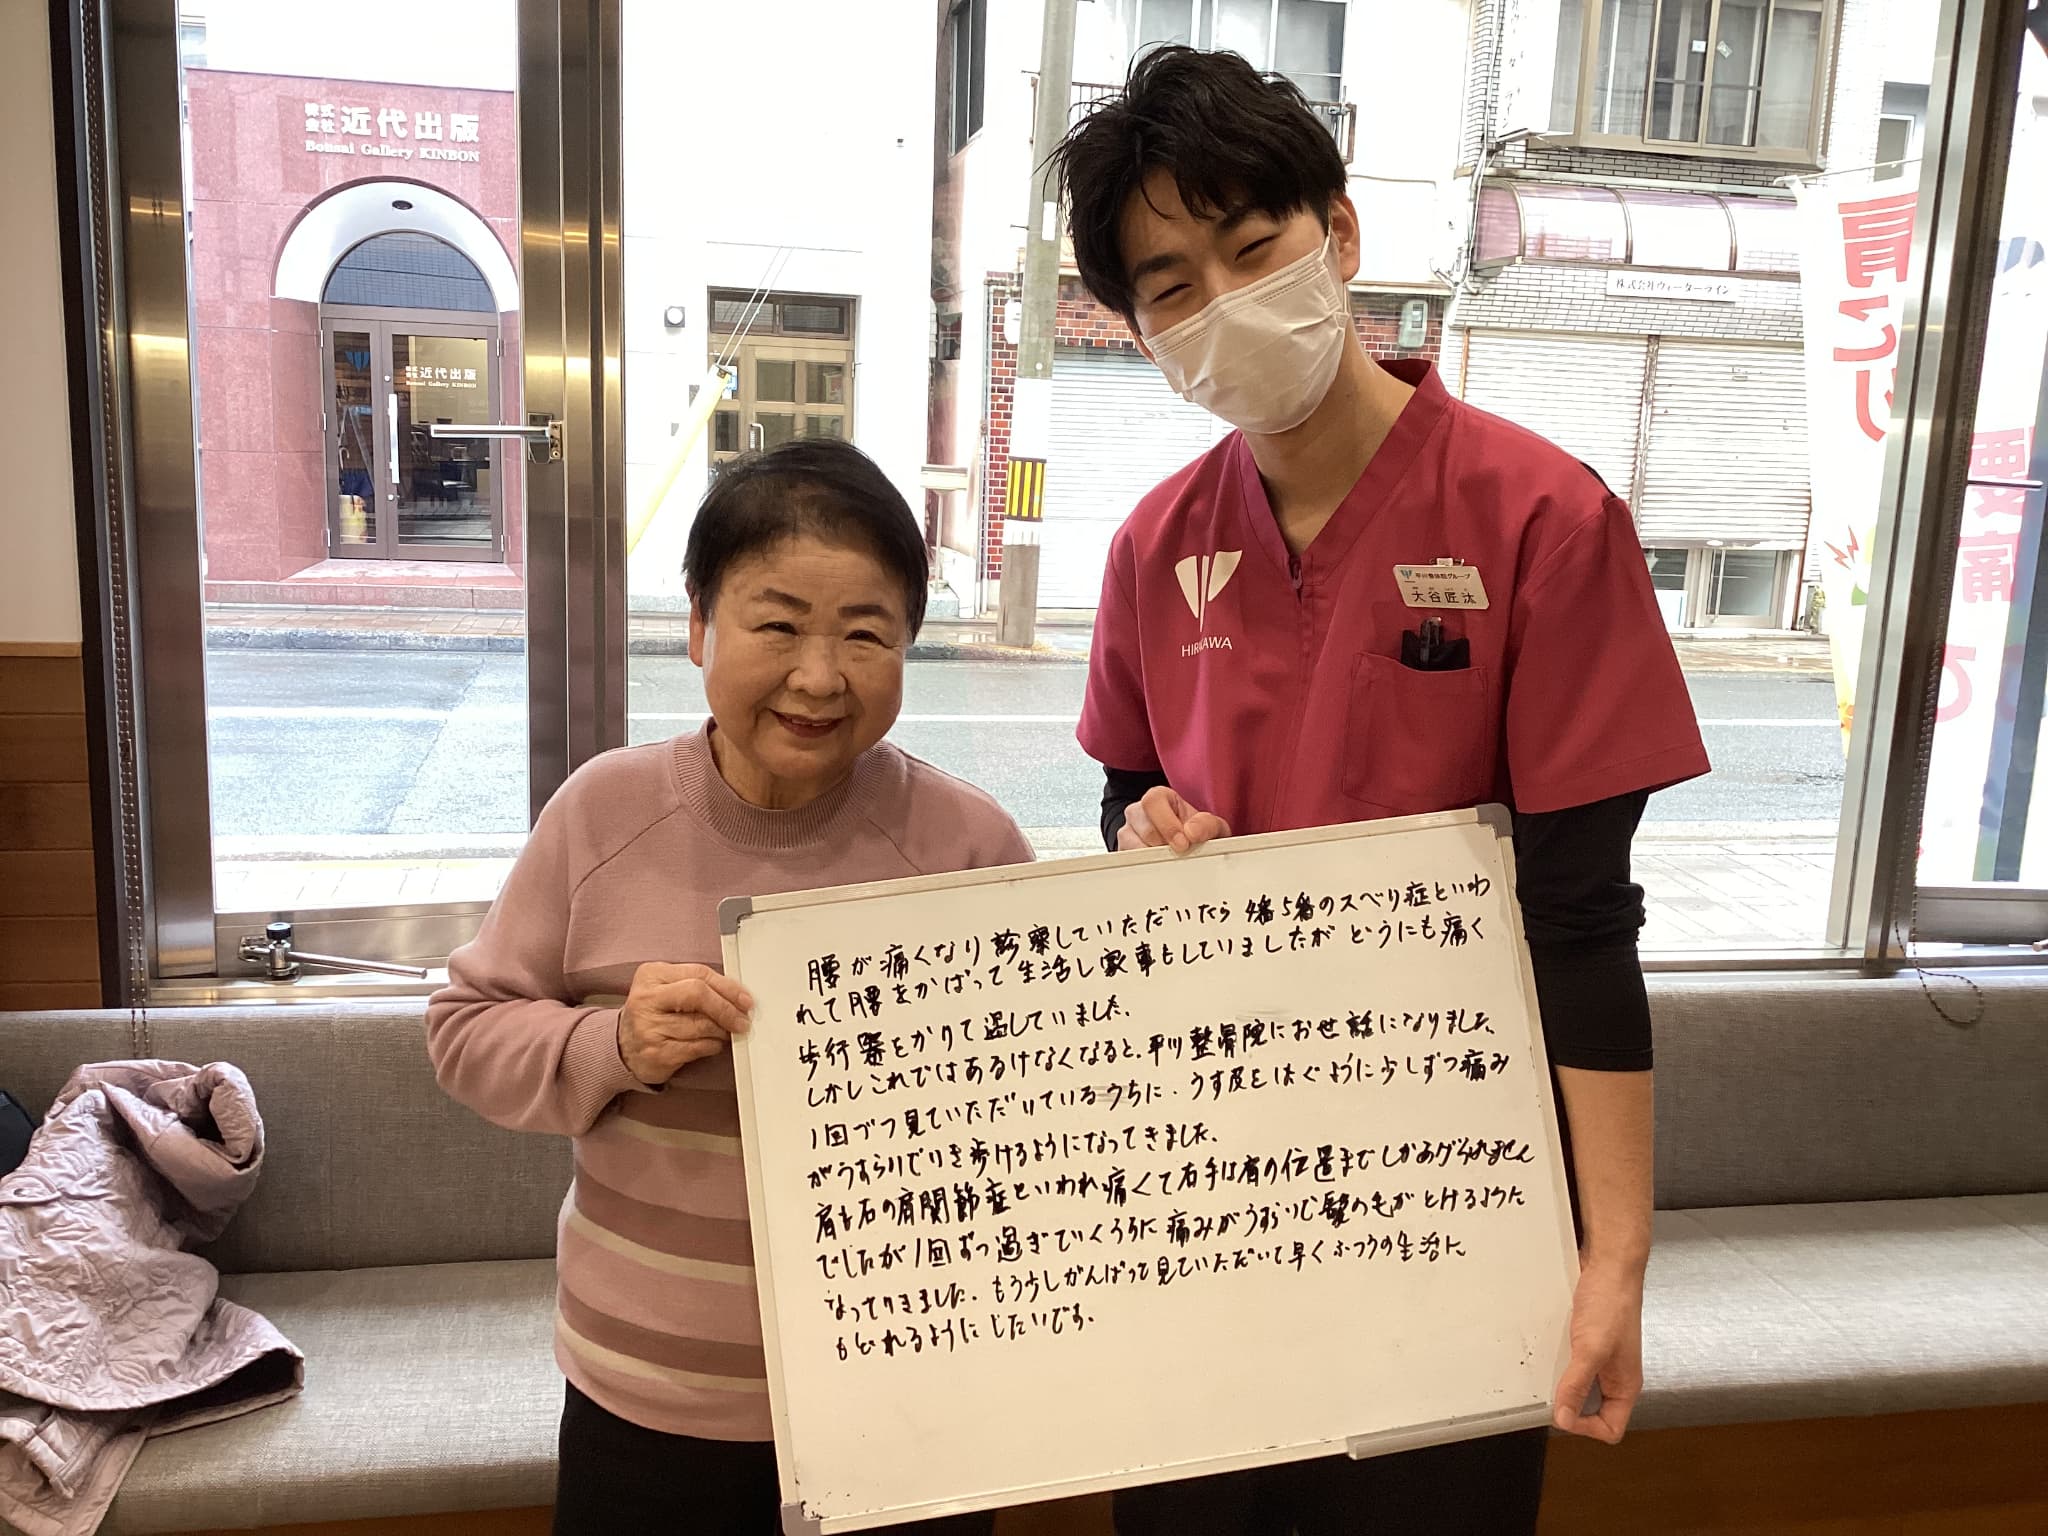 株式会社 近代出版
Bonsai Gallery KINBON
株式会社 近代出版
Bonsai Gallery KINBON
株式会社ウォーターライン
肩こり
腰痛
HIRAKAWA
平川整体院グループ
大谷匠汰
腰が痛くなり診察していただいたら4番5番のスベリ症といわ
れて腰をかばって生活し家事もしていましたがどうにも痛く
歩行器をかりて過していました。
しかしこれではあるけなくなると、平川整骨院にお世話になりました。
1回づつ見ていただいているうちに、うす皮をはぐように少しずつ痛み
がうすらいでいき歩けるようになってきました。
肩も右の肩関節症といわれ痛くて右手は肩の位置までしかあげられません
でしたが1回ずつ過ぎていくうちに痛みがうすらいで髪の毛がとけるように
なってきました。もう少しがんばって見ていただいて早くふつうの生活に
もどれるようにしたいです。